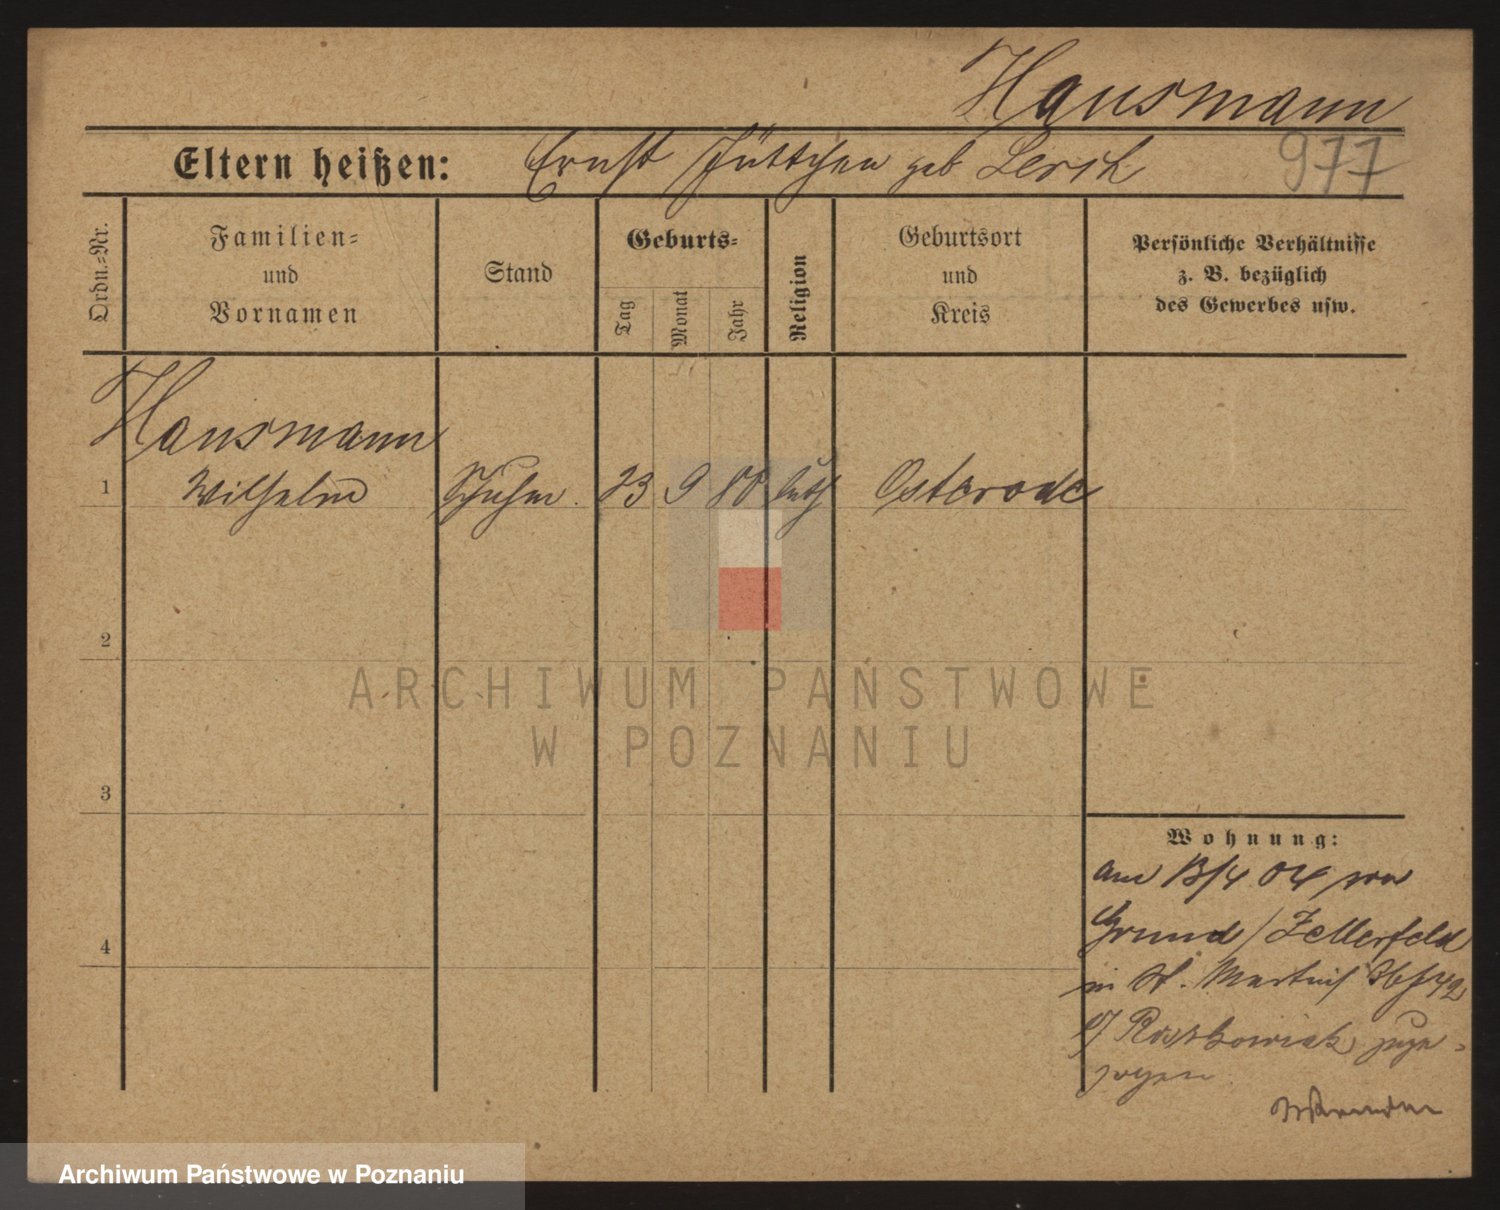 Hausmann
Eltern heißen: Ernst Jüttchen geb Lersch
977
Ordn.-Nr.
Familien-
und
Vornamen
Stand
Geburts-
Tag
Monat
Jahr
Religion
Geburtsort
und
Kreis
Persönliche Verhältnisse
z. B. bezüglich
des Gewerbes usw.
Hausmann
1 Wilhelm Schuhm. 23 9 80 luth Osterode
2
ARCHIWUM PAŃSTWOWE
W POZNANIU
3
Wohnung:
am 13/4 04 von
4
Grund / Zellerfeld
in St. Martin
zuge-
zogen
Archiwum Państwowe w Poznaniu